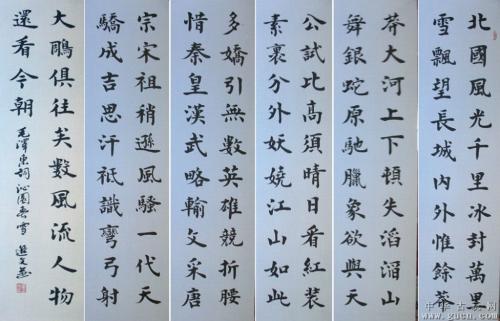 北國風光千里冰封萬里
雪飄望長城內外惟餘莽
莽大河上下頓失滔滔山
舞銀蛇原馳臘象欲與天
公試比高須晴日看紅裝
素裹分外妖嬈江山如此
多嬌引無數英雄競折腰
惜秦皇漢武略輸文采唐
宗宋祖稍遜風騷一代天
驕成吉思汗祇識彎弓射
大鵰俱往矣數風流人物
還看今朝 毛澤東詞 沁園春雪
中华古玩网
www.gucn.com